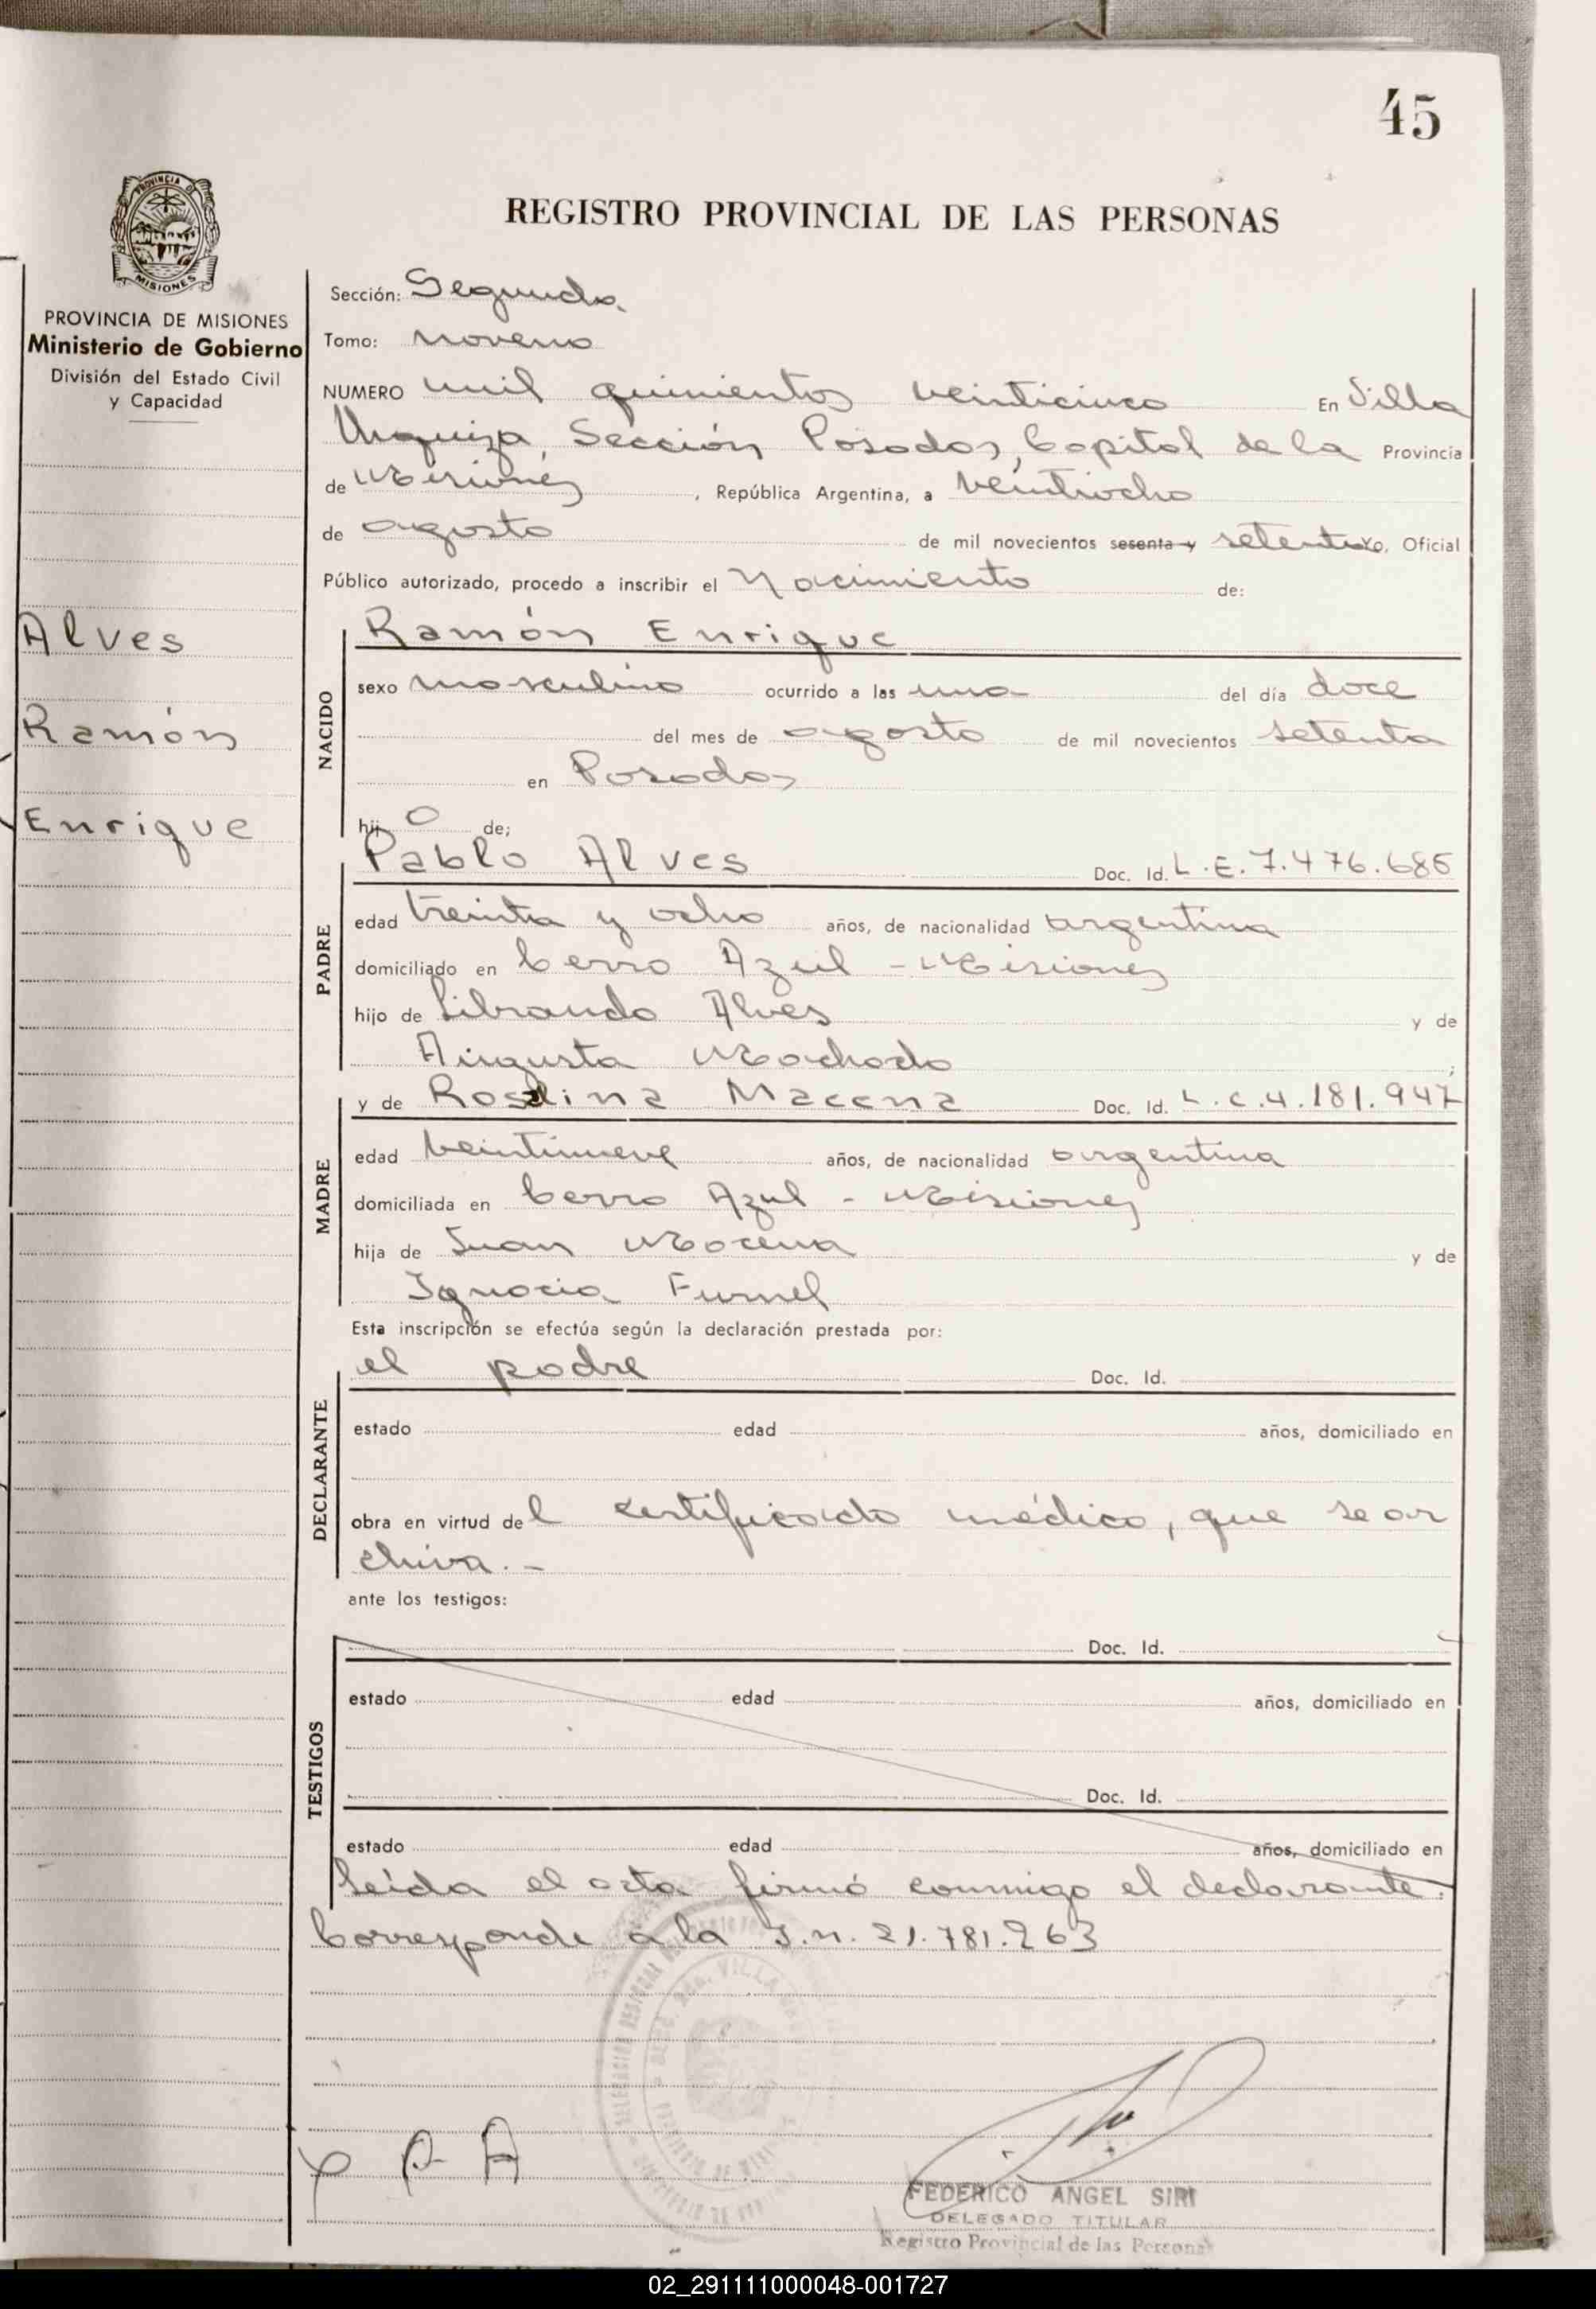 45
REGISTRO PROVINCIAL DE LAS PERSONAS
PROVINCIA DE MISIONES
PROVINCIA DE MISIONES
Ministerio de Gobierno
División del Estado Civil
y Capacidad
Alves
Ramón
Enrique
Sección: Segunda
Tomo: noveno
NUMERO mil quinientos veinticinco En Villa
Urquiza Sección Posadas, Capital de la Provincia
de Misiones, República Argentina, a veintiocho
de agosto de mil novecientos sesenta y setenta Yo, Oficial
Público autorizado, procedo a inscribir el Nacimiento de:
NACIDO
Ramón Enrique
sexo masculino ocurrido a las una del día doce
del mes de agosto de mil novecientos setenta
en Posadas
hij o de;
PADRE
Pablo Alves Doc. Id. L.E. 7.476.685
edad treinta y ocho años, de nacionalidad argentina
domiciliado en Cerro Azul - Misiones
hijo de Librando Alves y de
Augusta Machado ;
MADRE
y de Rosalina Macena Doc. Id. L.C. 4.181.947
edad veintinueve años, de nacionalidad argentina
domiciliada en Cerro Azul - Misiones
hija de Juan Macena y de
Ignacia Furnel
Esta inscripción se efectúa según la declaración prestada por:
DECLARANTE
el padre Doc. Id.
estado edad años, domiciliado en
obra en virtud del certificado médico, que se ar
chiva. -
ante los testigos:
TESTIGOS
Doc. Id.
estado edad años, domiciliado en
Doc. Id.
estado edad años, domiciliado en
Leída el acta firmó conmigo el declarante.
Corresponde a la I.n. 21.781.263
P A
FEDERICO ANGEL SIRI
DELEGADO TITULAR
Registro Provincial de las Personas
02_291111000048-001727